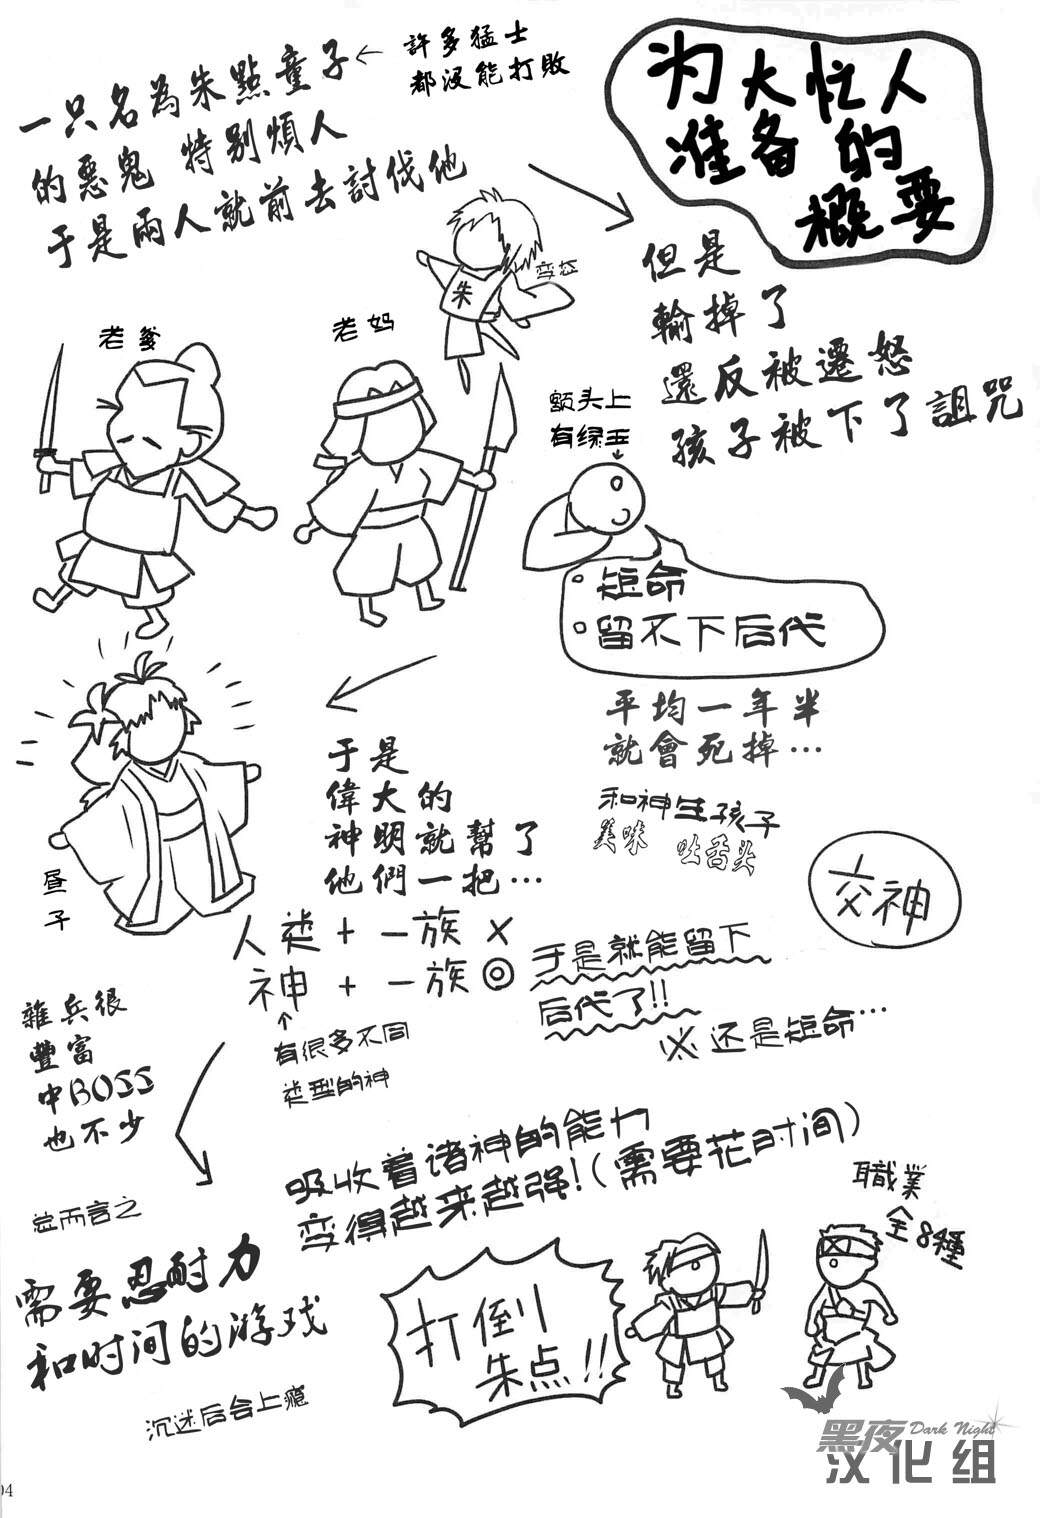 为大忙人
准备的
概要
許多猛士
都没能打敗
一只名為朱點童子←
的惡鬼 特别煩人
于是兩人就前去討伐他
但是
輸掉了
還反被遷怒
孩子被下了詛咒
朱
老爹
老妈
额头上
有绿玉
。短命
。留不下后代
平均一年半
就會死掉…
于是
偉大的
神明就幫了
他們一把…
昼子
和神生孩子
美味 吐舌头
交神
人类+一族×
神+一族◎
↑
有很多不同
类型的神
于是就能留下
后代了!!
※还是短命…
雜兵很
豐富
中BOSS
也不少
吸收着诸神的能力
变得越来越强!(需要花时间)
職業
全8種
总而言之
需要忍耐力
和时间的游戏
沉迷后会上瘾
打倒
朱点!!
黑夜 Dark Night
汉化组
04